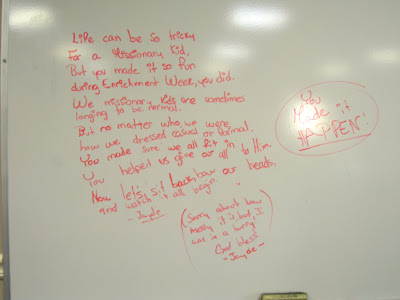 Life can be so tricky
For a Missionary Kid,
But you made it so fun
during Enrichment Week, you did.
We missionary kids are sometimes
longing to be normal.
But no matter who we were
how we dressed casual or formal.
You made sure we all fit in
You helped us give our all to Him.
Now let's sit back, bow our heads,
and watch it all begin.
- Jayde
(Sorry about how
messy it is, but, I
was in a hurry.
God bless!
- Jayde -)
You
Made it
HAPPEN!